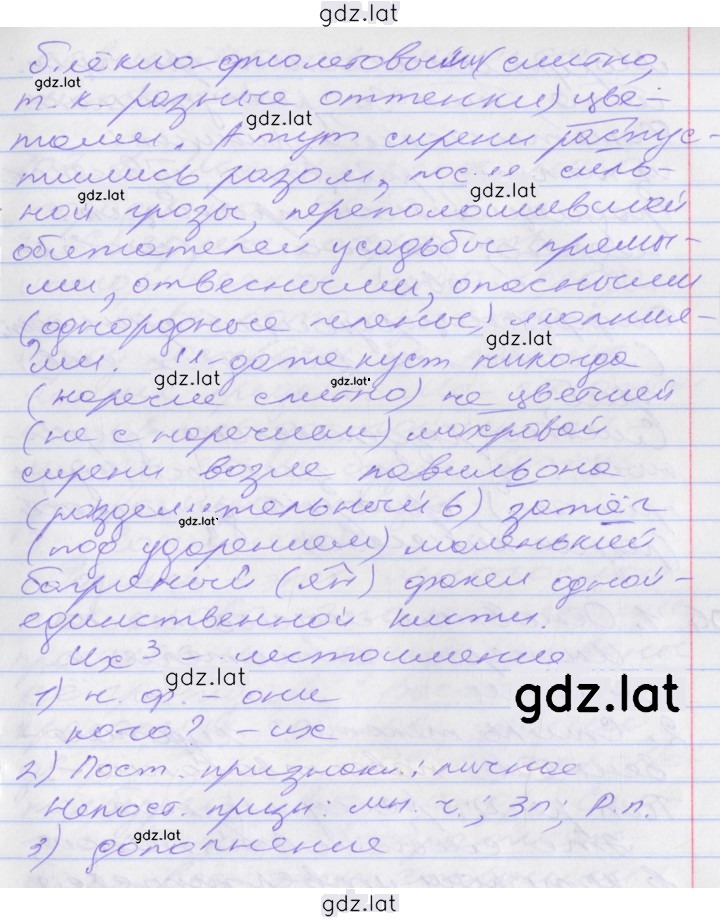 gdz.lat
блёкло-фиолетовыми (слитно,
gdz.lat
т. к. разные оттенки) цве-
gdz.lat
тами. А тут сирени распус-
тились разом, после силь-
gdz.lat gdz.lat
ной грозы, переполошившей
обитателей усадьбы прямы-
ми, отвесными, опасными
(однородные члены) молния-
ми. И даже куст никогда
gdz.lat gdz.lat gdz.lat
(наречие слитно) не цветшей
(не с наречием) махровой
сирени возле павильона
(разделительный ь) зажёг
gdz.lat
(под ударением) маленький
багряный (ян) факел одной-
единственной кисти.
Их³ – местоимение
gdz.lat
1) н. ф. – они
gdz.lat
кого? – их
2) Пост. признаки: личное
Непост. призн: мн. ч.; 3л; Р.п.
gdz.lat
3) дополнение
gdz.lat